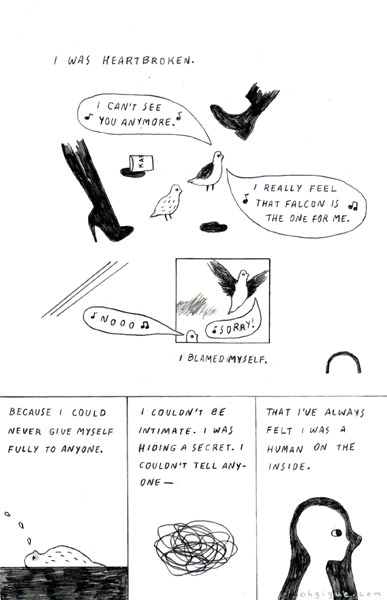 I WAS HEARTBROKEN.
I CAN'T SEE
YOU ANYMORE.
KAF
I REALLY FEEL
THAT FALCON IS
THE ONE FOR ME.
NOOO
SORRY!
I BLAMED MYSELF.
BECAUSE I COULD
NEVER GIVE MYSELF
FULLY TO ANYONE.
I COULDN'T BE
INTIMATE. I WAS
HIDING A SECRET. I
COULDN'T TELL ANY-
ONE —
THAT I'VE ALWAYS
FELT I WAS A
HUMAN ON THE
INSIDE.
ohgigue.com